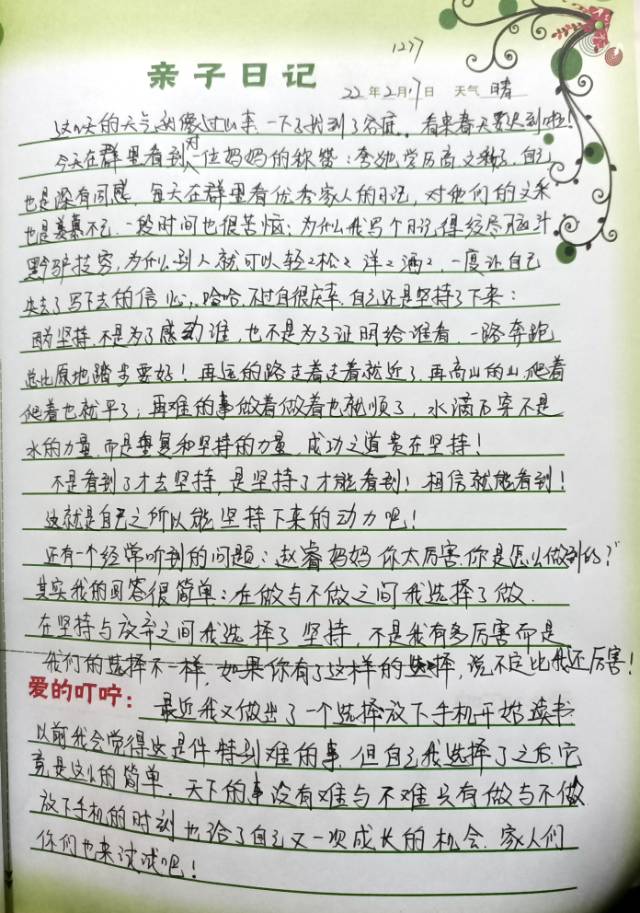 1277
亲子日记
22年2月17日 天气 晴
这几天的天气就像过山车,一下子到了谷底,看来春天要迟到啦!
今天在群里看到对一位妈妈的称赞:李她,学历高文采好,自己
也是深有同感,每天在群里看优秀家人的日记,对他们的文采
也是羡慕不已,一段时间也很苦恼:为什么我写个日记得绞尽脑汁
黔驴技穷,为什么别人就可以轻轻松松洋洋洒洒,一度让自己
失去了写下去的信心,哈哈,不过自很庆幸,自己还是坚持了下来:
因为坚持,不是为了感动谁,也不是为了证明给谁看,一路奔跑
总比原地踏步要好!再远的路走着走着就近了,再高山的山,爬着
爬着也就平了;再难的事做着做着也就顺了,水滴石穿不是
水的力量,而是重复和坚持的力量,成功之道贵在坚持!
不是看到了才去坚持,是坚持了才能看到!相信就能看到!
这就是自己之所以能坚持下来的动力吧!
还有一个经常听到的问题:赵睿妈妈你太厉害,你是怎么做到的?"
其实我的回答很简单:在做与不做之间我选择了做.
在坚持与放弃之间我选择了坚持,不是我有多厉害而是
我们的选择不一样,如果你有了这样的选择,说不定比我还厉害!
爱的叮咛: 最近我又做出了一个选择放下手机开始读书
以前我会觉得这是件特别难的事,但自己我选择了之后,它
竟是这么的简单,天下的事没有难与不难只有做与不做
放下手机的时刻也给了自己又一次成长的机会,家人们
你们也来试试吧!